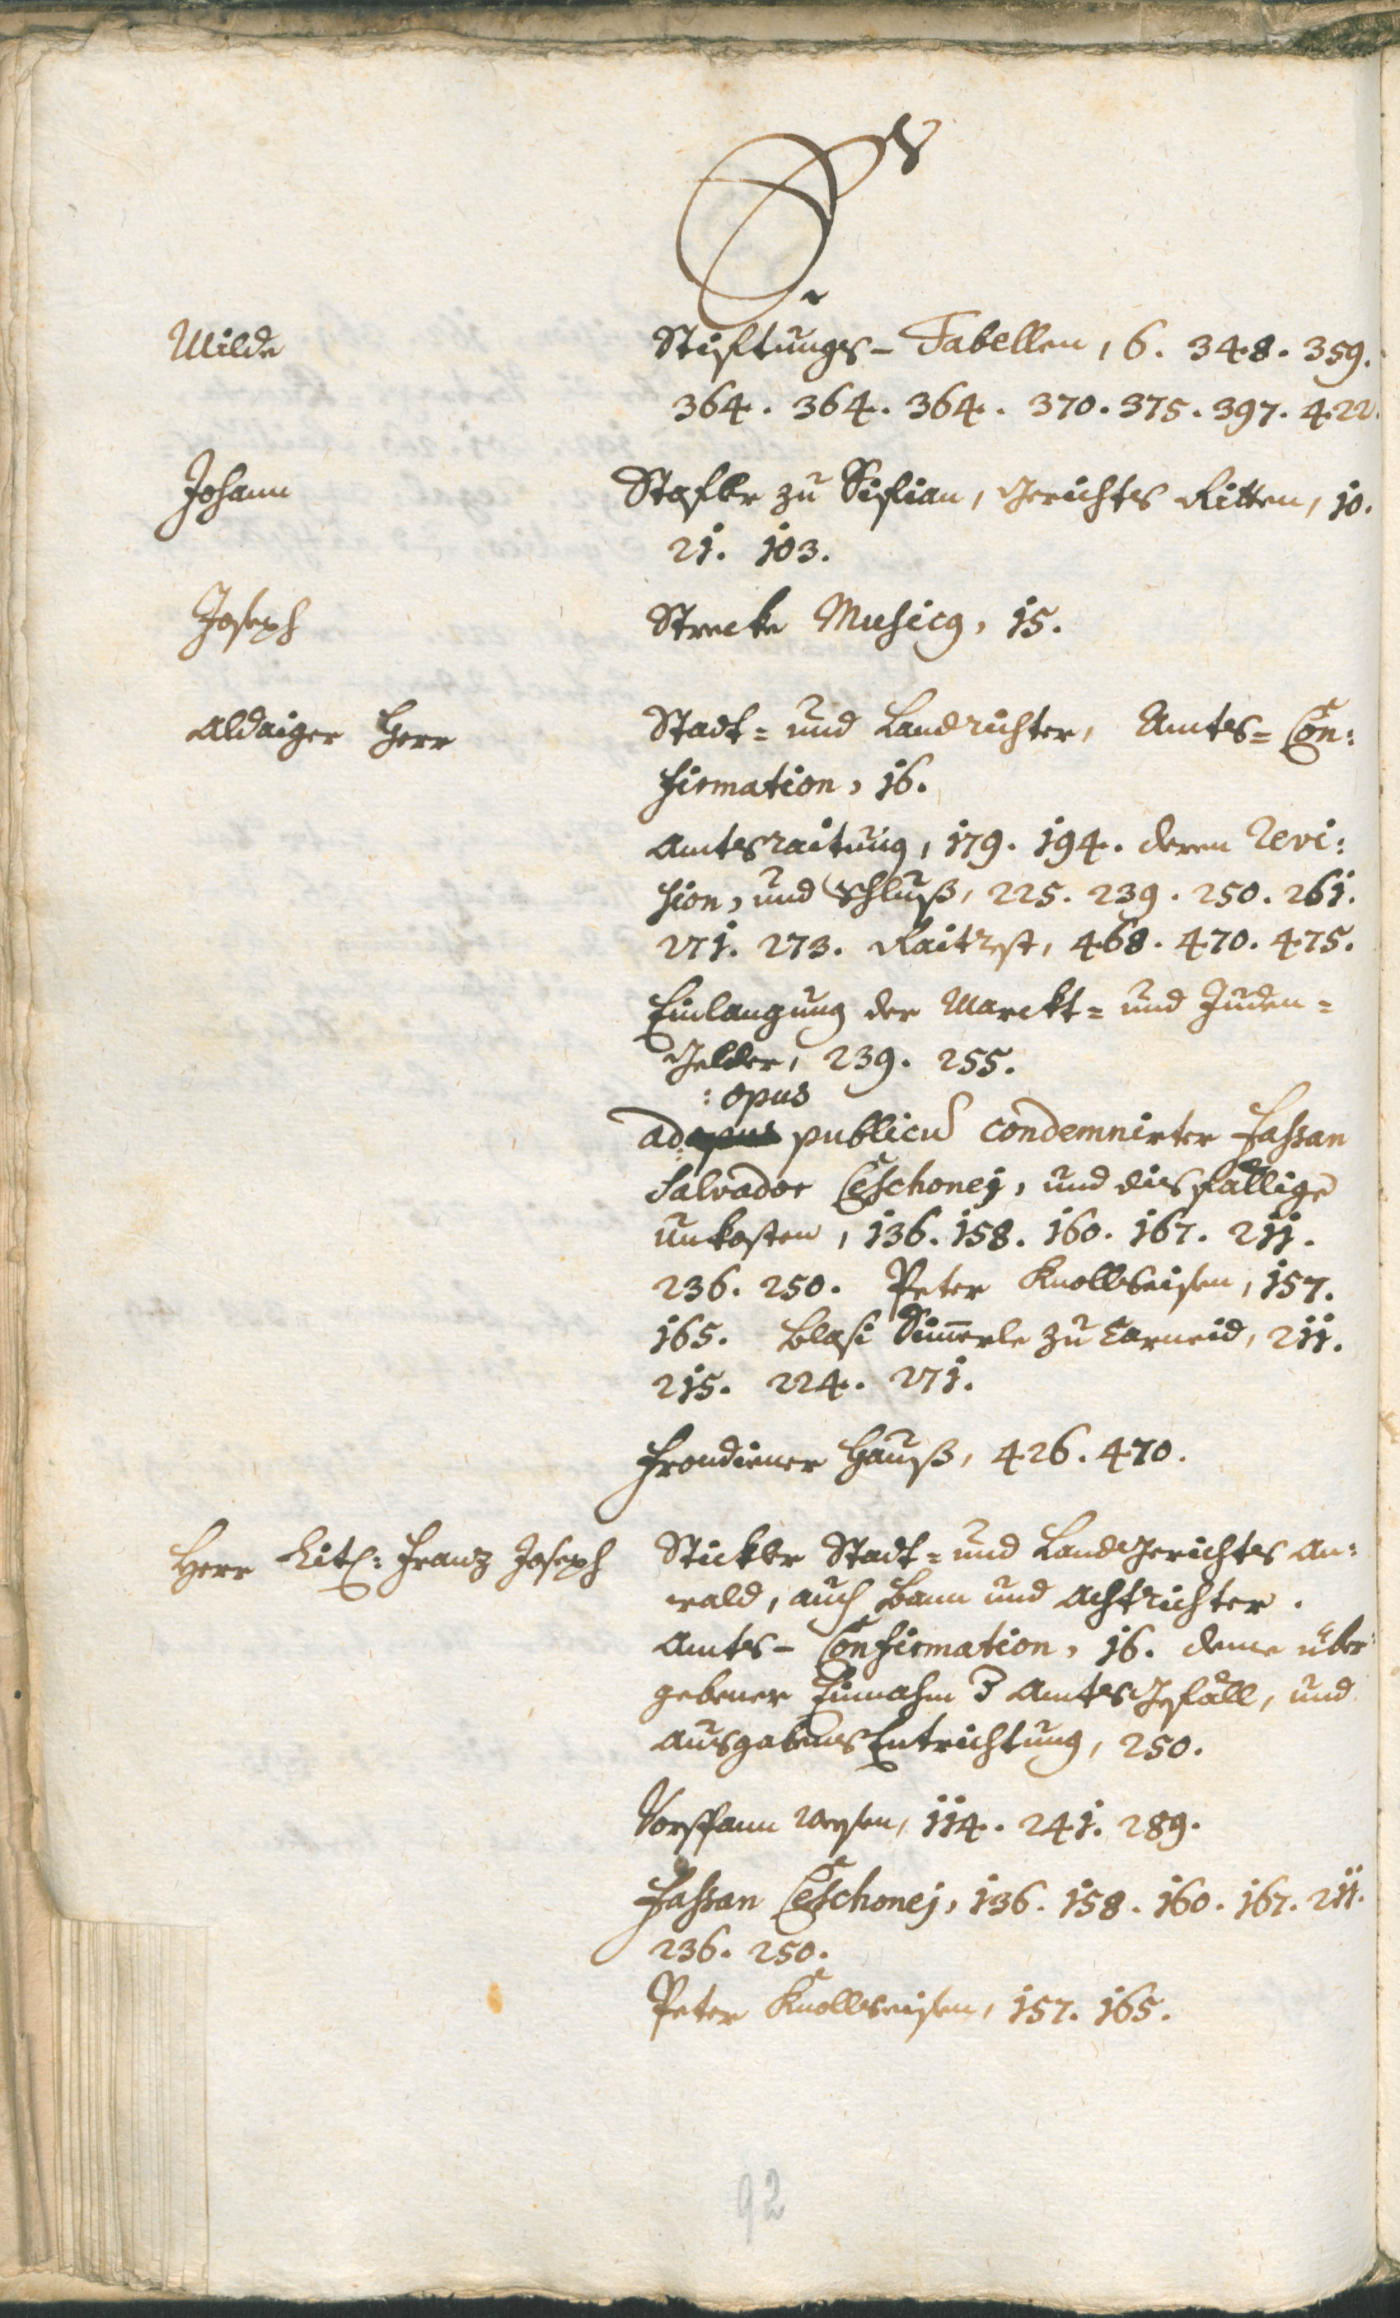 S
Milde Stifftungs-Tabellen, 6. 348. 359.
364. 364. 364. 370. 375. 397. 422.
Johann Stafler zu Sifian, Gerichts Ritten, 10.
21. 103.
Joseph Strecke Musicg, 15.
Aldaiger Herr Stadt= und Landrichter, Amts=Con:
firmation, 16.
Amtsraitung, 179. 194. deren Revi:
sion, und Schluß, 225. 239. 250. 261.
271. 273. Raitrest, 468. 470. 475.
Einlangung der Marckt= und Juden=
Gelder, 239. 255.
: opus
ad: publicu condemnirter Fassan
Salvador Ceschonej, und diesfällige
Unkosten, 136. 158. 160. 167. 211.
236. 250. Peter Knollseisen, 157.
165. Blasi Simerle zu Carneid, 211.
215. 224. 271.
Frondiener Hauß, 426. 470.
Herr Lit: Franz Joseph Stickler Stadt= und LandGerichts An:
wald, auch Bann und Achtrichter.
Amts-Confirmation, 16. deme über:
gebener Einnahm d AmtsGefäll, und
AusgabensEntrichtung, 250.
Vorspann wesen, 114. 241. 289.
Fassan Ceschonej, 136. 158. 160. 167. 211.
236. 250.
Peter Knollseisen, 157. 165.
92